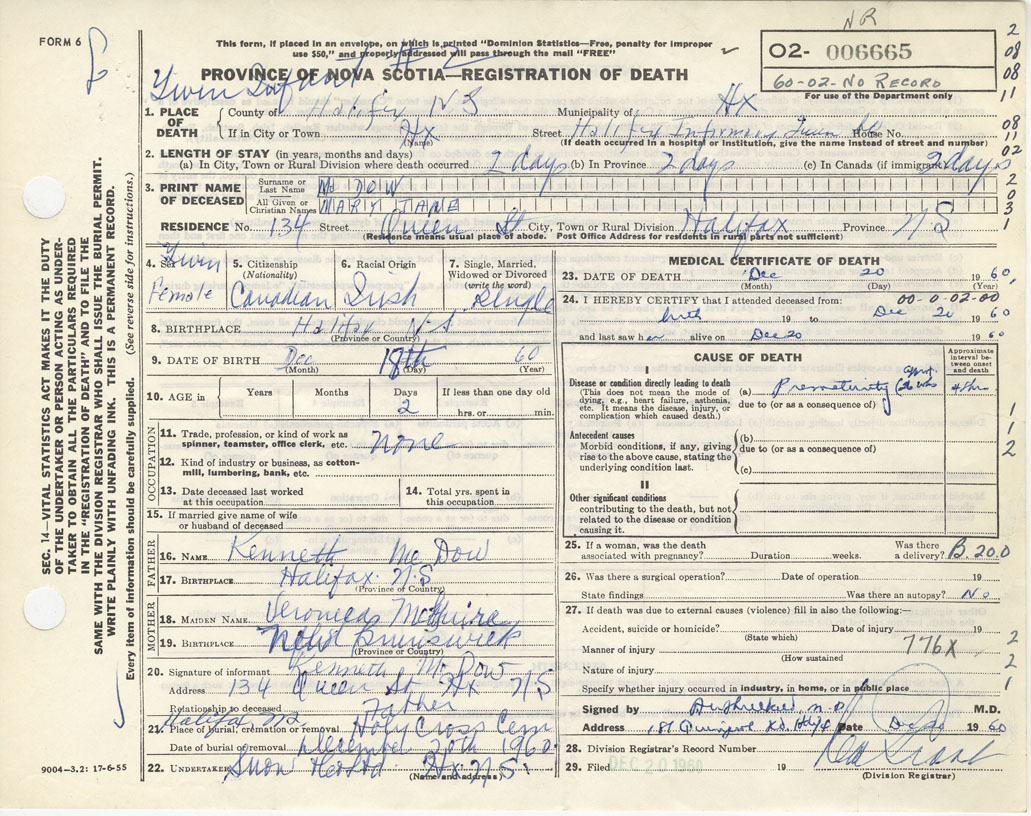 NR
FORM 6
This form, if placed in an envelope, on which is printed "Dominion Statistics—Free, penalty for improper
use $50," and properly addressed will pass through the mail "FREE"
02- 006665
60-02-No Record
For use of the Department only
Twin Infant #2
PROVINCE OF NOVA SCOTIA—REGISTRATION OF DEATH
1. PLACE OF DEATH County of Halifax N S Municipality of Hx
If in City or Town Hx (Name) Street Halifax Infirmary Queen St House No.
(If death occurred in a hospital or institution, give the name instead of street and number)
2. LENGTH OF STAY (in years, months and days)
(a) In City, Town or Rural Division where death occurred 2 days (b) In Province 2 days (c) In Canada (if immigrant) 2 days
3. PRINT NAME OF DECEASED Surname or Last Name Mc DOW
All Given or Christian Names MARY JANE
RESIDENCE No. 134 Street Queen St City, Town or Rural Division Halifax Province N S
(Residence means usual place of abode. Post Office Address for residents in rural parts not sufficient)
4. Sex Twin Female
5. Citizenship (Nationality) Canadian
6. Racial Origin Irish
7. Single, Married, Widowed or Divorced (write the word) Single
8. BIRTHPLACE Halifax N.S.
(Province or Country)
9. DATE OF BIRTH Dec 18th 60
(Month) (Day) (Year)
10. AGE in Years Months Days 2 If less than one day old hrs. or min.
OCCUPATION
11. Trade, profession, or kind of work as spinner, teamster, office clerk, etc. none
12. Kind of industry or business, as cotton-mill, lumbering, bank, etc.
13. Date deceased last worked at this occupation
14. Total yrs. spent in this occupation
15. If married give name of wife or husband of deceased
FATHER
16. NAME Kenneth Mc Dow
17. BIRTHPLACE Halifax N.S
(Province or Country)
MOTHER
18. MAIDEN NAME Veronica McGuire
19. BIRTHPLACE New Brunswick
(Province or Country)
20. Signature of informant Kenneth Mc Dow
Address 134 Queen St Hx N S
Relationship to deceased Father
Halifax N.S.
21. Place of burial, cremation or removal Holy Cross Cem
Date of burial or removal December 20th 1960
22. UNDERTAKER Snow Hx N S
(Name and address)
MEDICAL CERTIFICATE OF DEATH
23. DATE OF DEATH Dec 20 1960
(Month) (Day) (Year)
24. I HEREBY CERTIFY that I attended deceased from: 00-0-02-00
birth 19 to Dec 20 1960
and last saw her alive on Dec 20 1960
CAUSE OF DEATH
Approximate interval between onset and death
I
Disease or condition directly leading to death
(This does not mean the mode of dying, e.g., heart failure, asthenia, etc. It means the disease, injury, or complication which caused death.)
(a) Prematurity 48 hrs
due to (or as a consequence of)
Antecedent causes
Morbid conditions, if any, giving rise to the above cause, stating the underlying condition last.
(b)
due to (or as a consequence of)
(c)
II
Other significant conditions
contributing to the death, but not related to the disease or condition causing it.
25. If a woman, was the death associated with pregnancy? Duration weeks. Was there a delivery? B. 20.0
26. Was there a surgical operation? Date of operation 19
State findings Was there an autopsy? No
27. If death was due to external causes (violence) fill in also the following:—
Accident, suicide or homicide? Date of injury 19
(State which)
Manner of injury 776X
(How sustained
Nature of injury
Specify whether injury occurred in industry, in home, or in public place
Signed by M.D.
Address Date Dec 20 1960
28. Division Registrar's Record Number
29. Filed DEC 20 1960 19
(Division Registrar)
2
08
08
11
08
11
02
2
0
3
1
1
1
2
2
2
1
SEC. 14—VITAL STATISTICS ACT MAKES IT THE DUTY
OF THE UNDERTAKER OR PERSON ACTING AS UNDER-
TAKER TO OBTAIN ALL THE PARTICULARS REQUIRED
IN THE "REGISTRATION OF DEATH" AND TO FILE THE
SAME WITH THE DIVISION REGISTRAR WHO SHALL ISSUE THE BURIAL PERMIT.
WRITE PLAINLY WITH UNFADING INK. THIS IS A PERMANENT RECORD.
Every item of information should be carefully supplied. (See reverse side for instructions.)
9004—3.2: 17-6-55